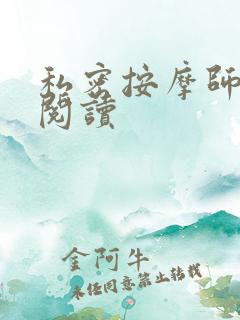 私密按摩師
閱讀
金阿牛
未经同意禁止转载